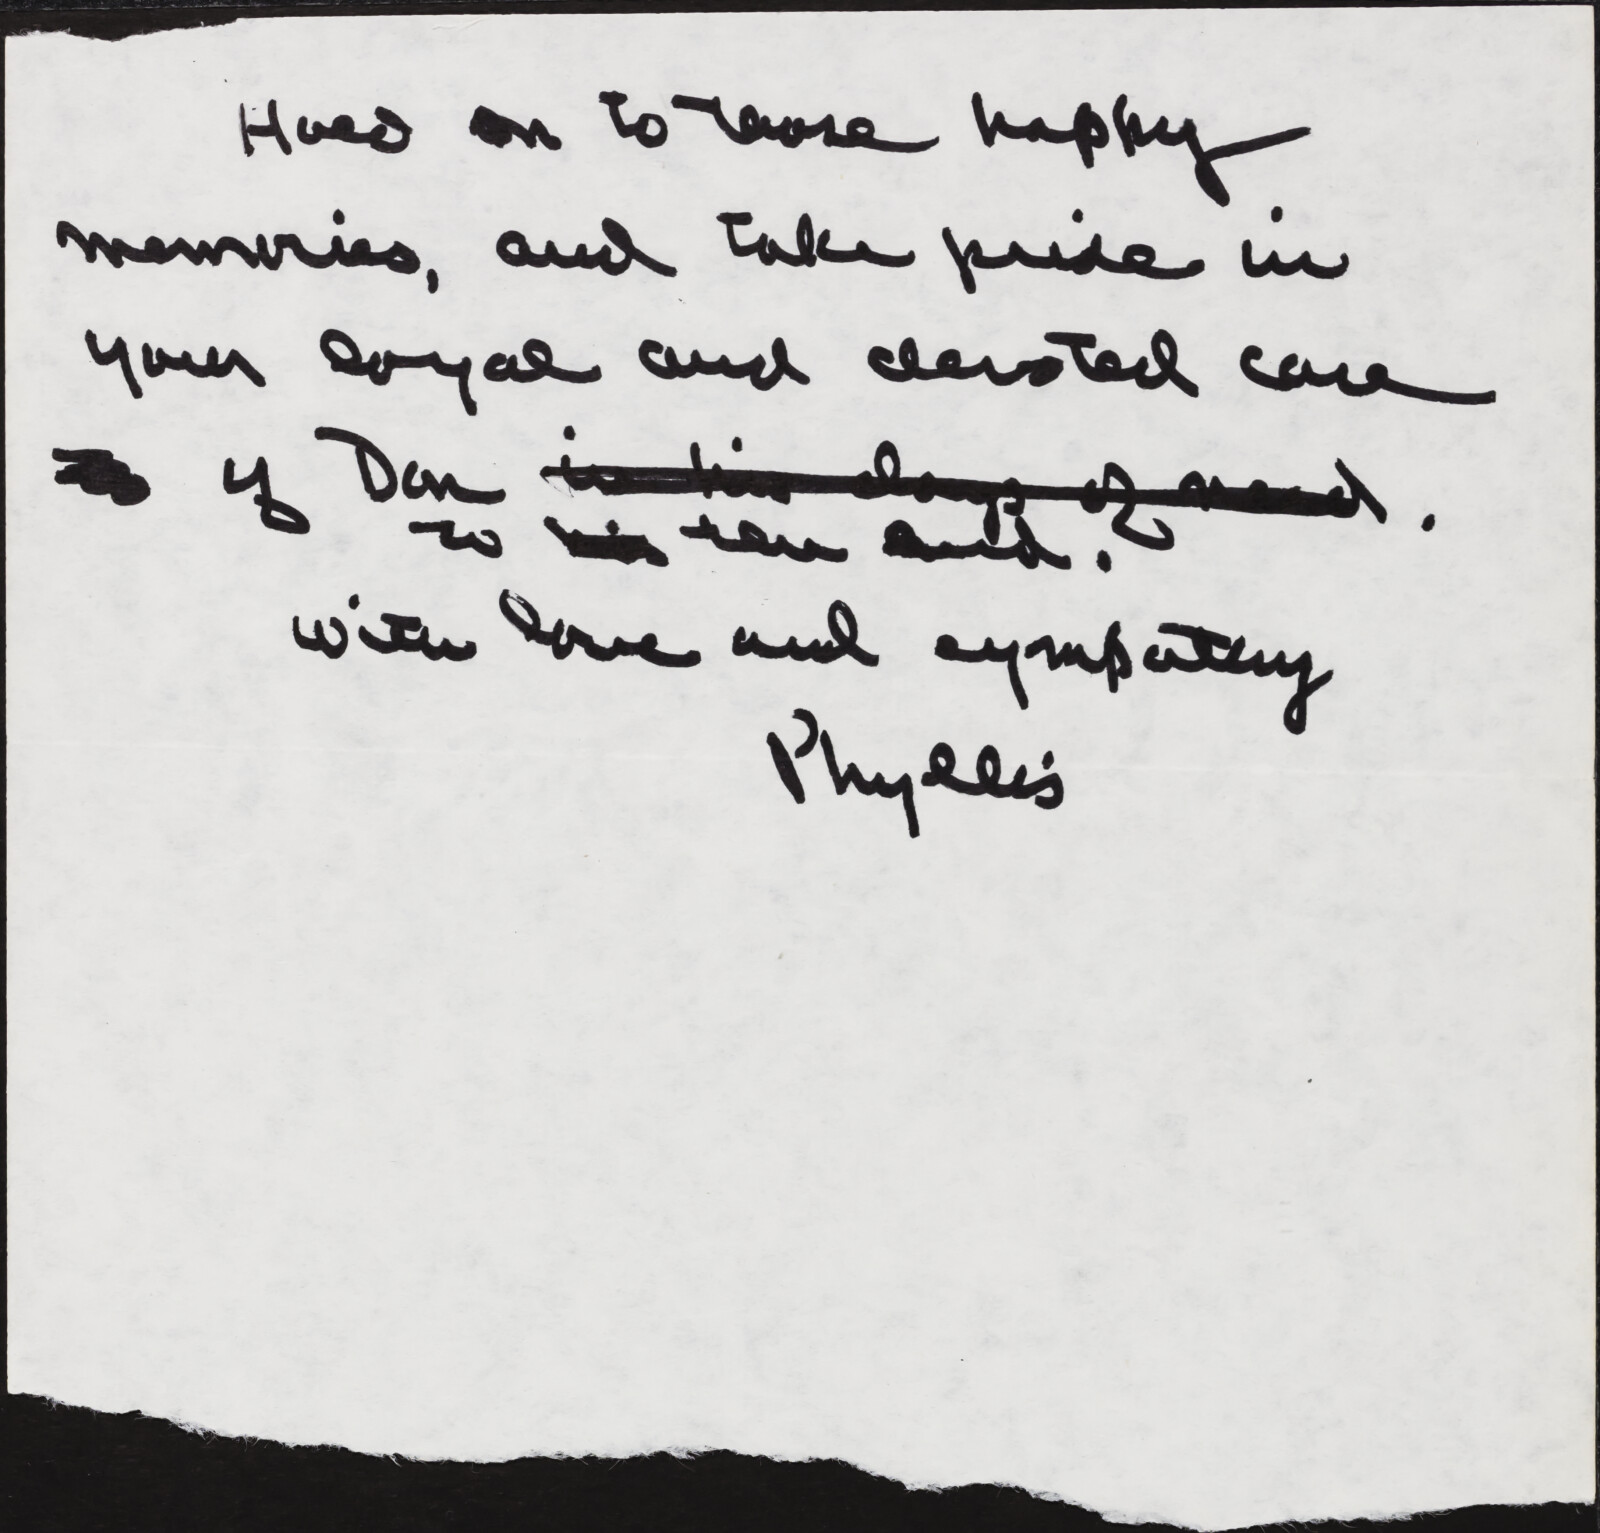 Hold on to those happy
memories, and take pride in
your loyal and devoted care
of Don in his days of need.
to his the end.
with love and sympathy
Phyllis